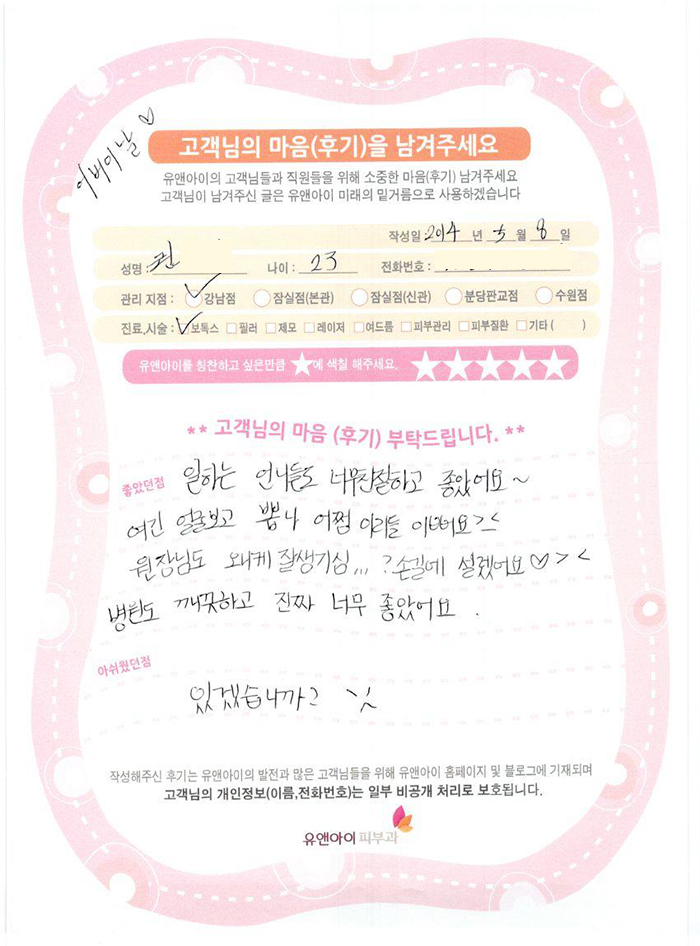 어버이날 ♡
고객님의 마음(후기)을 남겨주세요
유앤아이의 고객님들과 직원들을 위해 소중한 마음(후기) 남겨주세요
고객님이 남겨주신 글은 유앤아이 미래의 밑거름으로 사용하겠습니다
작성일 2014 년 5 월 8 일
성명 : 권 나이 : 23 전화번호 :
관리 지점 : 강남점 잠실점(본관) 잠실점(신관) 분당판교점 수원점
진료,시술 : 보톡스 필러 제모 레이저 여드름 피부관리 피부질환 기타 ( )
유앤아이를 칭찬하고 싶은만큼 ★에 색칠 해주세요. ★★★★★
** 고객님의 마음 (후기) 부탁드립니다. **
좋았던점 일하는 언니들도 너무친절하고 좋았어요~
여긴 얼굴보고 뽑나 어쩜 이리들 이뻐요><
원장님도 왜케 잘생기심,,, ? 손길에 설렜어요♡><
병원도 깨끗하고 진짜 너무 좋았어요 .
아쉬웠던점
있겠습니까?
작성해주신 후기는 유앤아이의 발전과 많은 고객님들을 위해 유앤아이 홈페이지 및 블로그에 기재되며
고객님의 개인정보(이름,전화번호)는 일부 비공개 처리로 보호됩니다.
유앤아이 피부과